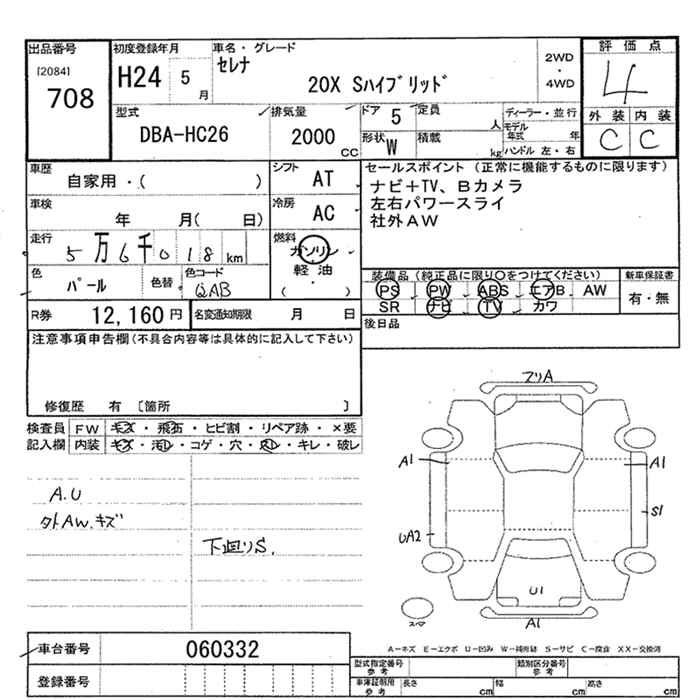 出品番号 初度登録年月 車名・グレード 評価点
[2084] セレナ 2WD
708 H24 5月 20X Sハイブリッド ・ 4
4WD
型式 排気量 ドア 5 定員 人 ディーラー・並行 外装 内装
DBA-HC26 2000CC モデル年式 年 C C
形状 W 積載 kg ハンドル 左・右
車歴 シフト セールスポイント (正常に機能するものに限ります)
自家用・( ) AT ナビ+TV、Bカメラ
車検 冷房 左右パワースライ
年 月( 日) AC 社外AW
走行 燃料
5万6千018km ガソリン
色 色替 色コード 軽油 装備品 (純正品に限り○をつけてください) 新車保証書
パール QAB ( ) PS PW ABS エアB AW 有・無
R券 12,160円 名変通知期限 月 日 SR ナビ TV カワ
注意事項申告欄(不具合内容等は具体的に記入して下さい) 後日品
修復歴 有 [箇所 ]
検査員 FW キズ・飛石・ヒビ割・リペア跡・×要
記入欄 内装 キズ・汚レ・コゲ・穴・スレ・キレ・破レ
A.U
外AW.キズ
下廻りS.
フリA
A1 A1
S1
UA2
U1
スペア A1
A-キズ E-エクボ U-凹み W-補修跡 S-サビ C-腐食 XX-交換済
車台番号 060332 型式指定番号 参考 類別区分番号 参考
登録番号 車庫証明用 参考 長さ cm 幅 cm 高さ cm